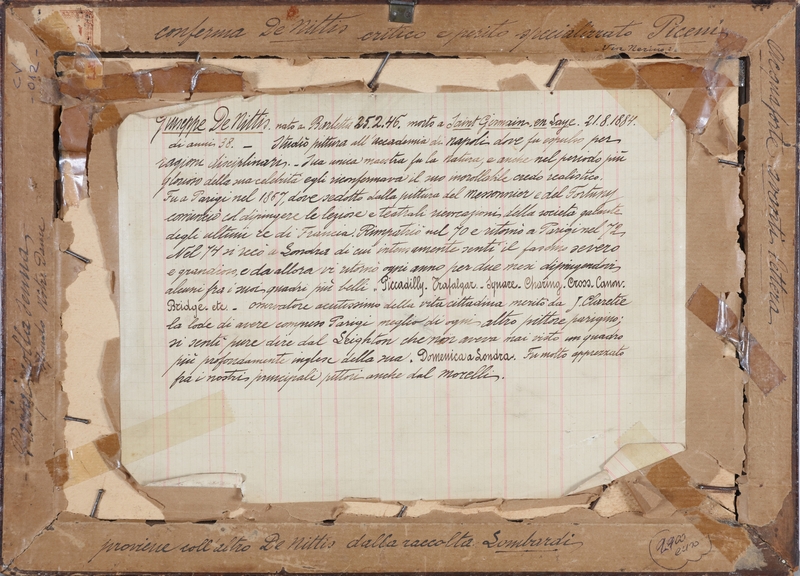 conferma De Nittis critico e perito specializzato Piceni
Giuseppe De Nittis nato a Barletta 25.2.46. morto a Saint Germain, en Laye. 21.8.1884.
di anni 38. – Studiò pittura all'accademia di napoli dove fu espulso, per
ragioni disciplinari. – Sua unica maestra fu la Natura, e anche nel periodo più
glorioso della sua celebrità egli riconfermava il suo incrollabile credo realistico.
Fu a Parigi nel 1867, dove sedotto dalla pittura del Messonnier e del Fortuny
cominciò ad dipingere le leziose e teatrali rievocazioni della società galante
degli ultimi re di Francia. Rimpatriò nel 70 e ritornò a Parigi nel 72.
Nel 74 si recò a Londra di cui intensamente sentì il fascino severo
e grandioso, e da allora vi ritornò ogni anno per due mesi dipingendovi
alcuni fra i suoi quadri più belli: Piccadilly. Trafalgar. Square. Charing. Cross. Canon.
Bridge. etc. – osservatore acutissimo della vita cittadina meritò da J. Claretie
la lode di avere compreso Parigi meglio di ogni altro pittore parigino;
si sentì pure dire dal Leighton che non aveva mai visto un quadro
più profondamente inglese della sua. Domenica a Londra. Fu molto apprezzato
fra i nostri principali pittori anche dal Morelli.
proviene coll'altro De Nittis dalla raccolta Lombardi